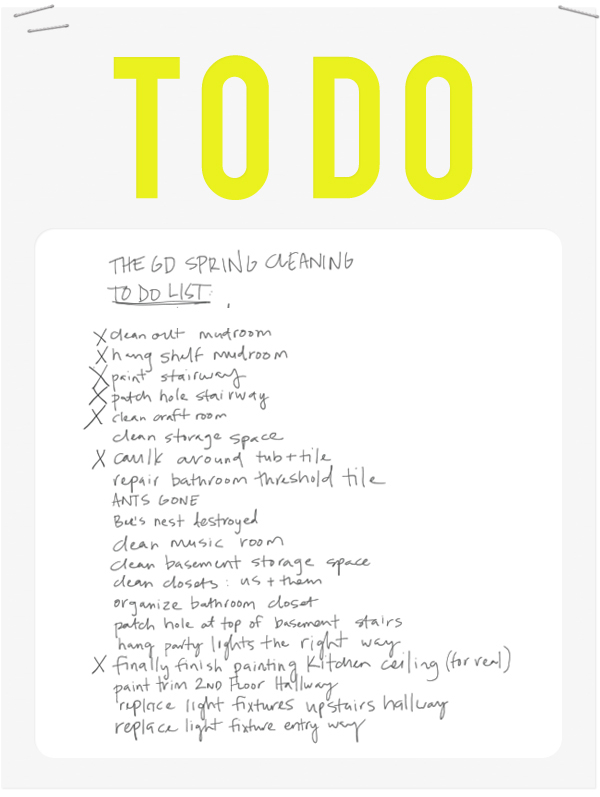 TO DO
THE GD SPRING CLEANING
TO DO LIST:
X clean out mudroom
X hang shelf mudroom
X paint stairway
X patch hole stairway
X clean craft room
clean storage space
X caulk around tub + tile
repair bathroom threshold tile
ANTS GONE
Bee's nest destroyed
clean music room
clean basement storage space
clean closets : us + them
organize bathroom closet
patch hole at top of basement stairs
hang party lights the right way
X finally finish painting kitchen ceiling (for real)
paint trim 2ND Floor Hallway
replace light fixtures upstairs hallway
replace light fixture entry way